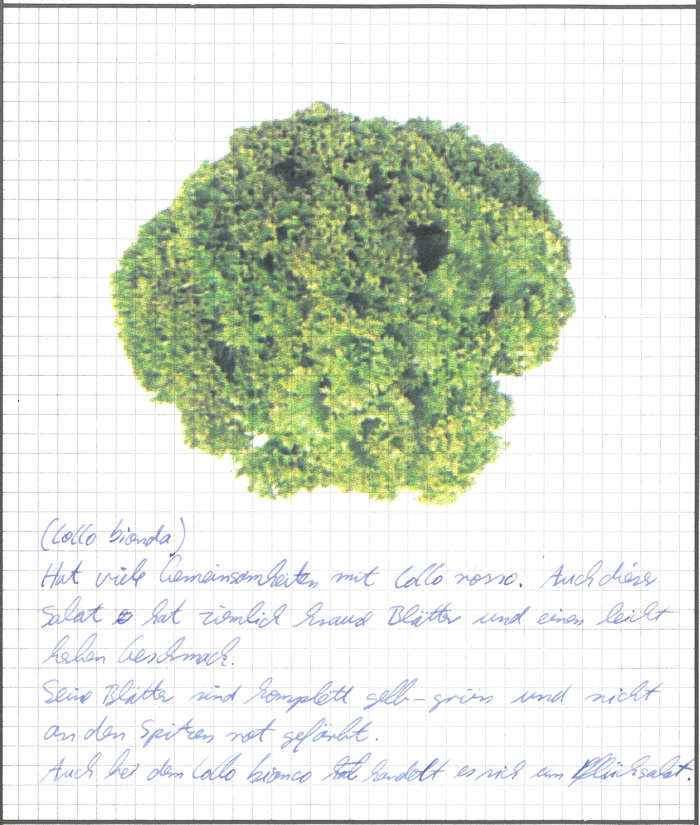 (Lollo bionda)
Hat viele Gemeinsamkeiten mit Lollo rosso. Auch dieser
Salat hat ziemlich krause Blätter und einen leicht
herben Geschmack.
Seine Blätter sind komplett gelb-grün und nicht
an den Spitzen rot gefärbt.
Auch bei dem Lollo bianco handelt es sich um Pflücksalat.